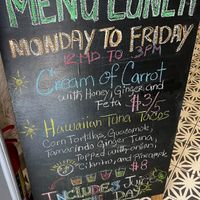 MENU LUNCH
MONDAY TO FRIDAY
12 MD TO 3PM
Cream of Carrot
with Honey, Ginger and
Feta $3/5
Hawaiian Tuna Tacos
Corn Tortillas, Guacamole,
Tamarindo Ginger Tuna,
Topped with onion,
Cilantro, and pineapple
$8
INCLUDES
DAY